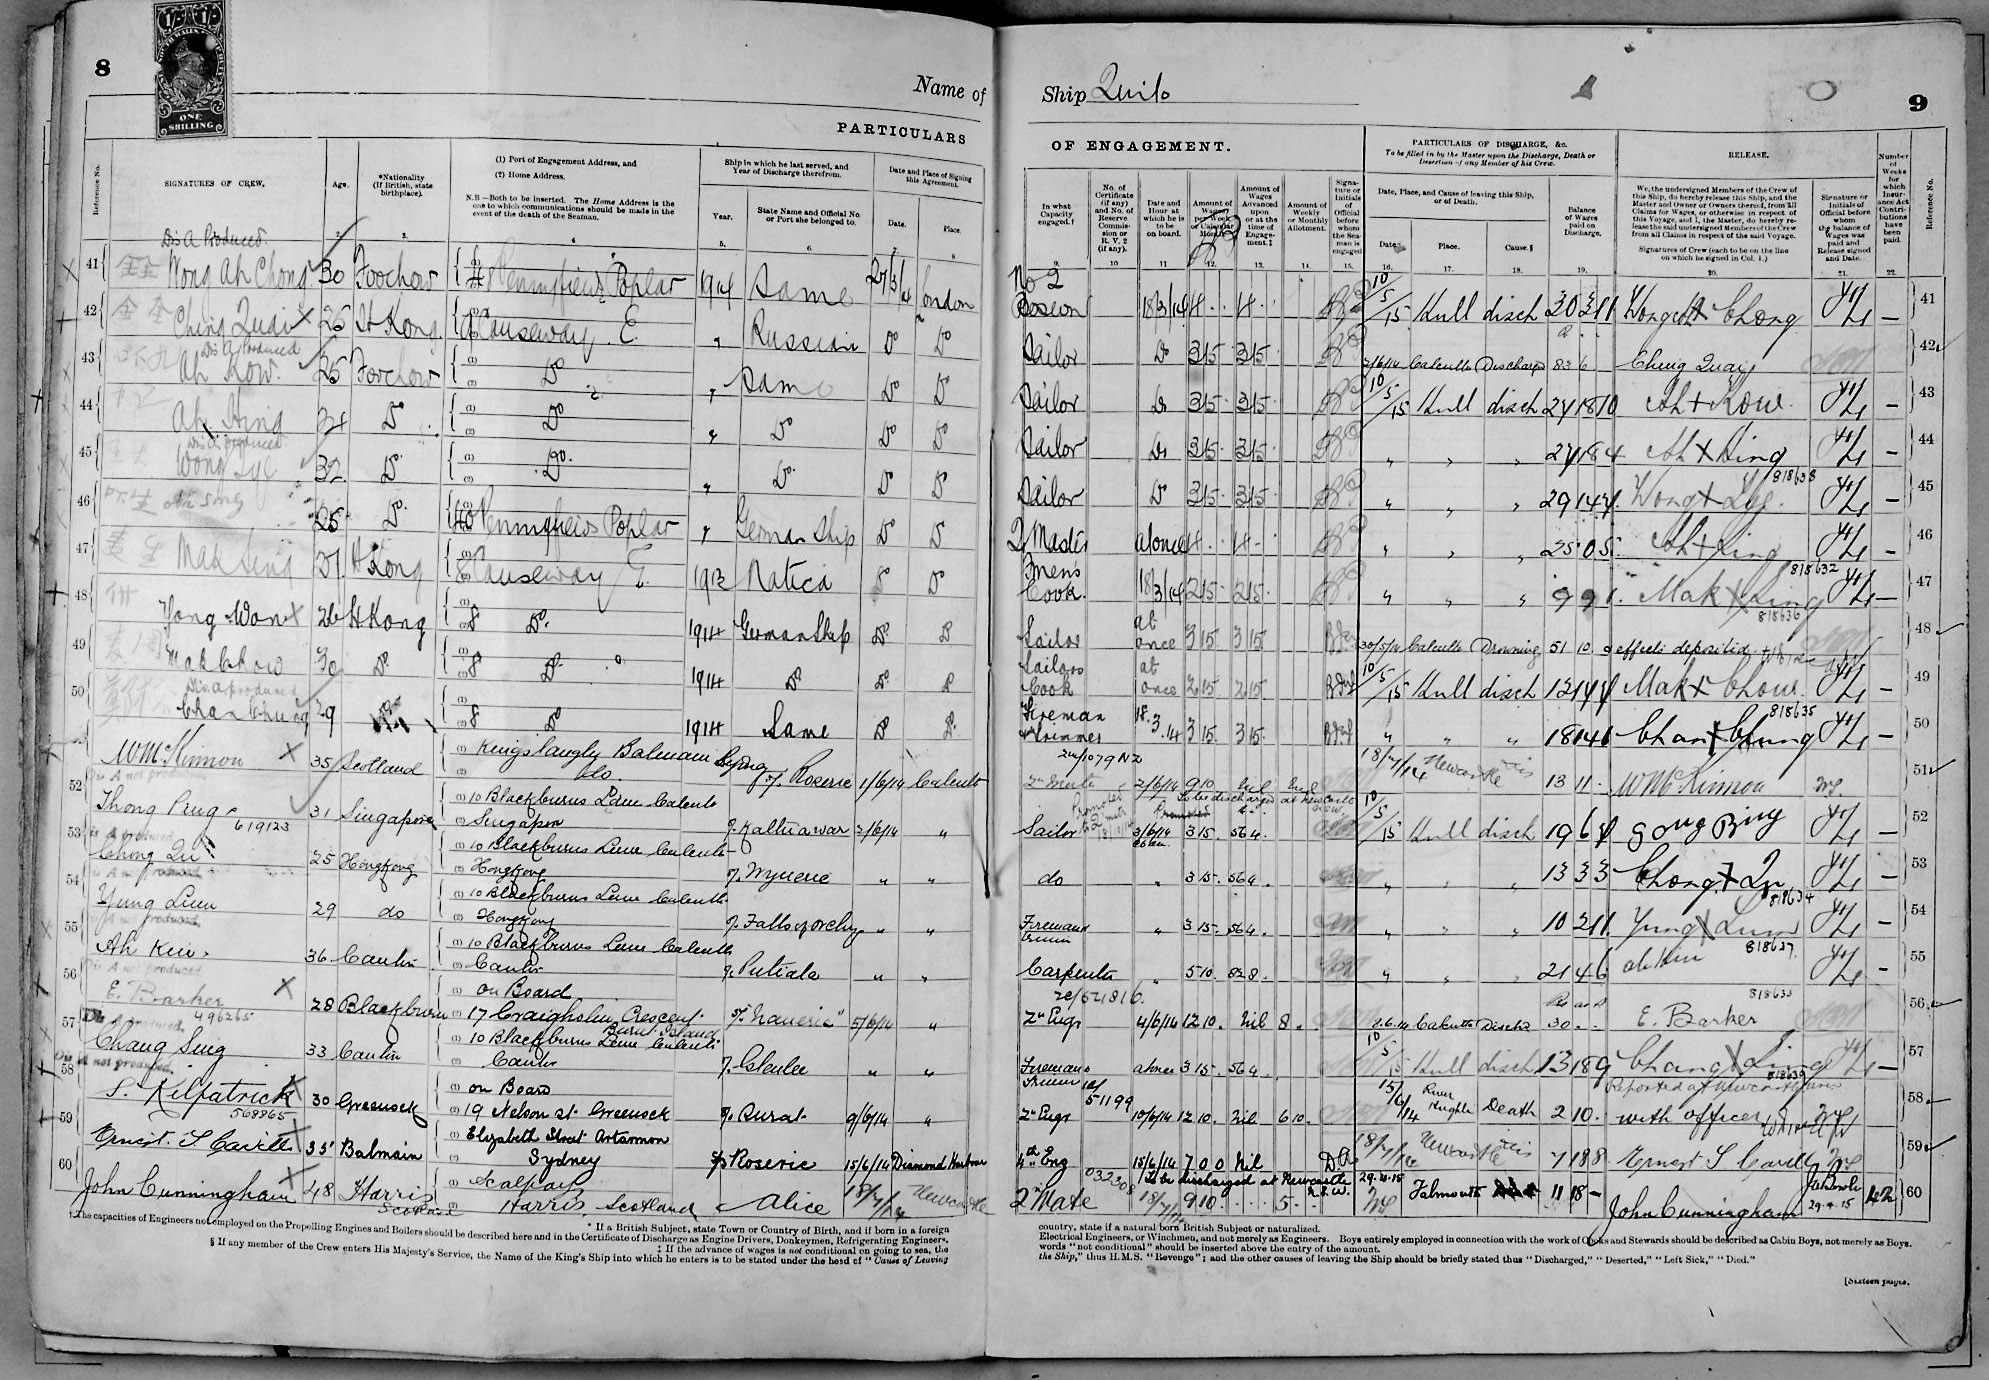 8
SOUTH WALES
ONE
SHILLING
Name of
PARTICULARS
Reference No.
SIGNATURES OF CREW.
Age.
*Nationality
(If British, state
birthplace).
(1) Port of Engagement Address, and
(2) Home Address.
N.B—Both to be inserted. The Home Address is the
one to which communications should be made in the
event of the death of the Seaman.
Ship in which he last served, and
Year of Discharge therefrom.
Year.
State Name and Official No
or Port she belonged to.
Date and Place of Signing
this Agreement.
Date.
Place.
Dis A Produced.
41 Wong Ah Chong 30 Foochow Pennyfields Poplar 1914 Same 27/3/14 London
42 Ching Quai X 25 H Kong Causeway. E " Russian Do Do
Dis A produced
43 Ah Kow. 25 Foochow Do " Same Do Do
44 Ah Hing 24 Do Do " Do Do Do
Dis A produced
45 Wong Lye 32 Do Do " Do Do Do
46 Ah Sing 25 Do Pennyfields Poplar " German Ship Do Do
47 Mak Sing H Kong 8 Causeway E. 1913 Natica Do Do
48 Yong Won X 26 H Kong 8 Do 1914 German Ship Do Do
49 Mak Chow 30 Do 8 Do 1914 Do Do Do
Dis A produced
50 Chan Chung 29 8 Do 1914 Same Do Do
WMcKinnon X 35 Scotland Kingslangly Balmain Sydney Roseric 1/6/14 Calcutta
Dis A not produced
52 Thong Ping 31 Singapore 10 Blackburns Lane Calcutta
619123 Singapore Kathiawar 2/6/14 "
53 Chong Qu 25 Hongkong 10 Blackburns Lane Calcutta
Hongkong Wyneric " "
54 Yung Lum 29 do 10 Blackburns Lane Calcutta
Hongkong Falls of Orchy " "
55 Ah Kew. 36 Canton 10 Blackburns Lane Calcutta
Canton Putiala " "
Dis A not produced
56 E. Barker X 28 Blackburn on Board
496265 17 Craigholm Crescent Burnt Island "Naneric" 5/6/14 "
57 Chang Sing 33 Canton 10 Blackburns Lane Calcutta
Canton Glenlee " "
Dis A not produced.
58 S. Kilpatrick X 30 Greenock on Board
568865 19 Nelson St. Greenock Surat 9/6/14 "
59 Ernest. S Cavill X 35 Balmain Elizabeth Street Artarmon
Sydney Roseric 15/6/14 Diamond Harbour
60 John Cunningham X 48 Harris Scotland Scalpay
Harris, Scotland Alice 18/7/14 Newcastle
† The capacities of Engineers not employed on the Propelling Engines and Boilers should be described here and in the Certificate of Discharge as Engine Drivers, Donkeymen, Refrigerating Engineers,
* If a British Subject, state Town or Country of Birth, and if born in a foreign
‡ If the advance of wages is not conditional on going to sea, the
§ If any member of the Crew enters His Majesty's Service, the Name of the King's Ship into which he enters is to be stated under the head of "Cause of Leaving
Ship Quito
9
OF ENGAGEMENT.
In what
Capacity
engaged.†
No. of
Certificate
(if any)
and No. of
Reserve
Commis-
sion or
R. V. 2
(if any).
Date and
Hour at
which he is
to be
on board.
Amount of
Wages
per Week
or Calendar
Month.
Amount of
Wages
Advanced
upon
or at the
time of
Engage-
ment.‡
Amount of
Weekly
or Monthly
Allotment.
Signa-
ture or
Initials
of
Official
before
whom
the Sea-
man is
engaged
PARTICULARS OF DISCHARGE, &c.
To be filled in by the Master upon the Discharge, Death or
Desertion of any Member of his Crew.
Date, Place, and Cause of leaving this Ship,
or of Death.
Date.
Place.
Cause.§
Balance
of Wages
paid on
Discharge.
RELEASE.
We, the undersigned Members of the Crew of
this Ship, do hereby release this Ship, and the
Master and Owner or Owners thereof, from all
Claims for Wages, or otherwise in respect of
this Voyage, and I, the Master, do hereby re-
lease the said undersigned Members of the Crew
from all Claims in respect of the said Voyage.
Signatures of Crew (each to be on the line
on which he signed in Col. 1.)
Signature or
Initials of
Official before
whom
the balance of
Wages was
paid and
Release signed
and Date.
Number
of
Weeks
for
which
Insur-
ance Act
Contri-
butions
have
been
paid.
Reference No.
9. 10 11 12. 13. 14. 15. 16. 17. 18. 19. 20. 21. 22.
No 2
Boseon 18/3/14 4 . . 4 . . 10/5/15 Hull disch 30 3 11 Wong Ah X Chong — 41
Sailor Do 3 15 3 15 2/6/14 Calcutta Discharged 8 3 6 Ching Quai 42
Sailor Do 3 15 3 15 10/5/15 Hull disch 24 18 10 Ah X Kow — 43
Sailor Do 3 15 3 15 " " " 27 18 4 Ah X Hing — 44
818638
Sailor Do 3 15 3 15 " " " 29 14 4 Wong X Lye — 45
2 Master at once 4 . . 4 . . " " " 25 0 5 Ah X Sing — 46
818632
Mens Cook. 18/3/14 2 15 2 15 " " " 9 9 1 Mak X Sing — 47
818636
Sailor at once 3 15 3 15 30/5/14 Calcutta Drowning 51 10 9 effects deposited 48
Sailors Cook at once 2 15 2 15 10/5/15 Hull disch 12 14 4 Mak X Chow — 49
818635
Fireman & Trimmer 18.3.14 3 15 3 15 " " " 18 14 6 Chan X Chung — 50
2n Mate 2/6/14 9 10 Nil Nil 18/7/14 Newcastle Dis 13 11 - WMcKinnon 51
To be discharged at Newcastle N.S.W.
Sailor 3/6/14 3 15 . 5 6 4 . 10/5/15 Hull disch 19 6 4 Gong Bing — 52
do " 3 15 . 5 6 4 . " " " 13 3 3 Chong X Qu — 53
818634
Fireman & Trimmer " 3 15 . 5 6 4 . " " " 10 2 11 Yung X Lum — 54
818637
Carpenter " 5 10 . 8 2 8 . " " " 21 4 6 Ah Kew — 55
818633
2n Engr 4/6/14 12 10 . Nil 8 . 2.6.14 Calcutta Dischd 30 . . E. Barker 56
Fireman & Trimmer at once 3 15 . 5 6 4 . 10/5/15 Hull disch 13 18 9 Chang X Sing — 57
818639
51199
2n Engr 10/6/14 12 10 . Nil 6 10 . 15/6/14 River Hughli Death 2 10 . Reported at Newcastle
with officer 58
4th Eng 15/6/14 7 0 0 Nil 18/7/14 Newcastle Dis 7 18 8 Ernest S Cavill 59
To be discharged at Newcastle N.S.W.
2n Mate 032308 18/7/14 9 10 . . . 5 . . 29.4.15 Falmouth 11 18 - John Cunningham 29.4.15 42 60
country, state if a natural born British Subject or naturalized.
Electrical Engineers, or Winchmen, and not merely as Engineers. Boys entirely employed in connection with the work of Cooks and Stewards should be described as Cabin Boys, not merely as Boys.
words "not conditional" should be inserted above the entry of the amount.
the Ship," thus H.M.S. "Revenge"; and the other causes of leaving the Ship should be briefly stated thus "Discharged," "Deserted," "Left Sick," "Died."
[Sixteen pages.